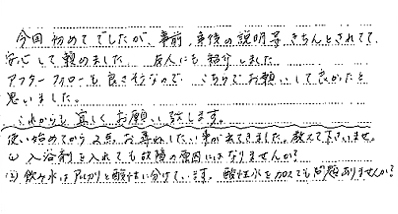 今回初めてでしたが、事前、事後の説明等きちんとされてて、
安心して頼めました。友人にも紹介しました。
アフターフォローも良さそうなので、こちらでお願いして良かったと
思いました。
これからも宜しくお願い致します。
使い始めてから2点お尋ねしたい事が出てきました。教えて下さいませ。
① 入浴剤を入れても故障の原因にはなりませんか?
② 飲み水はアルカリと酸性に分けています。酸性水を加えても問題ありませんか?